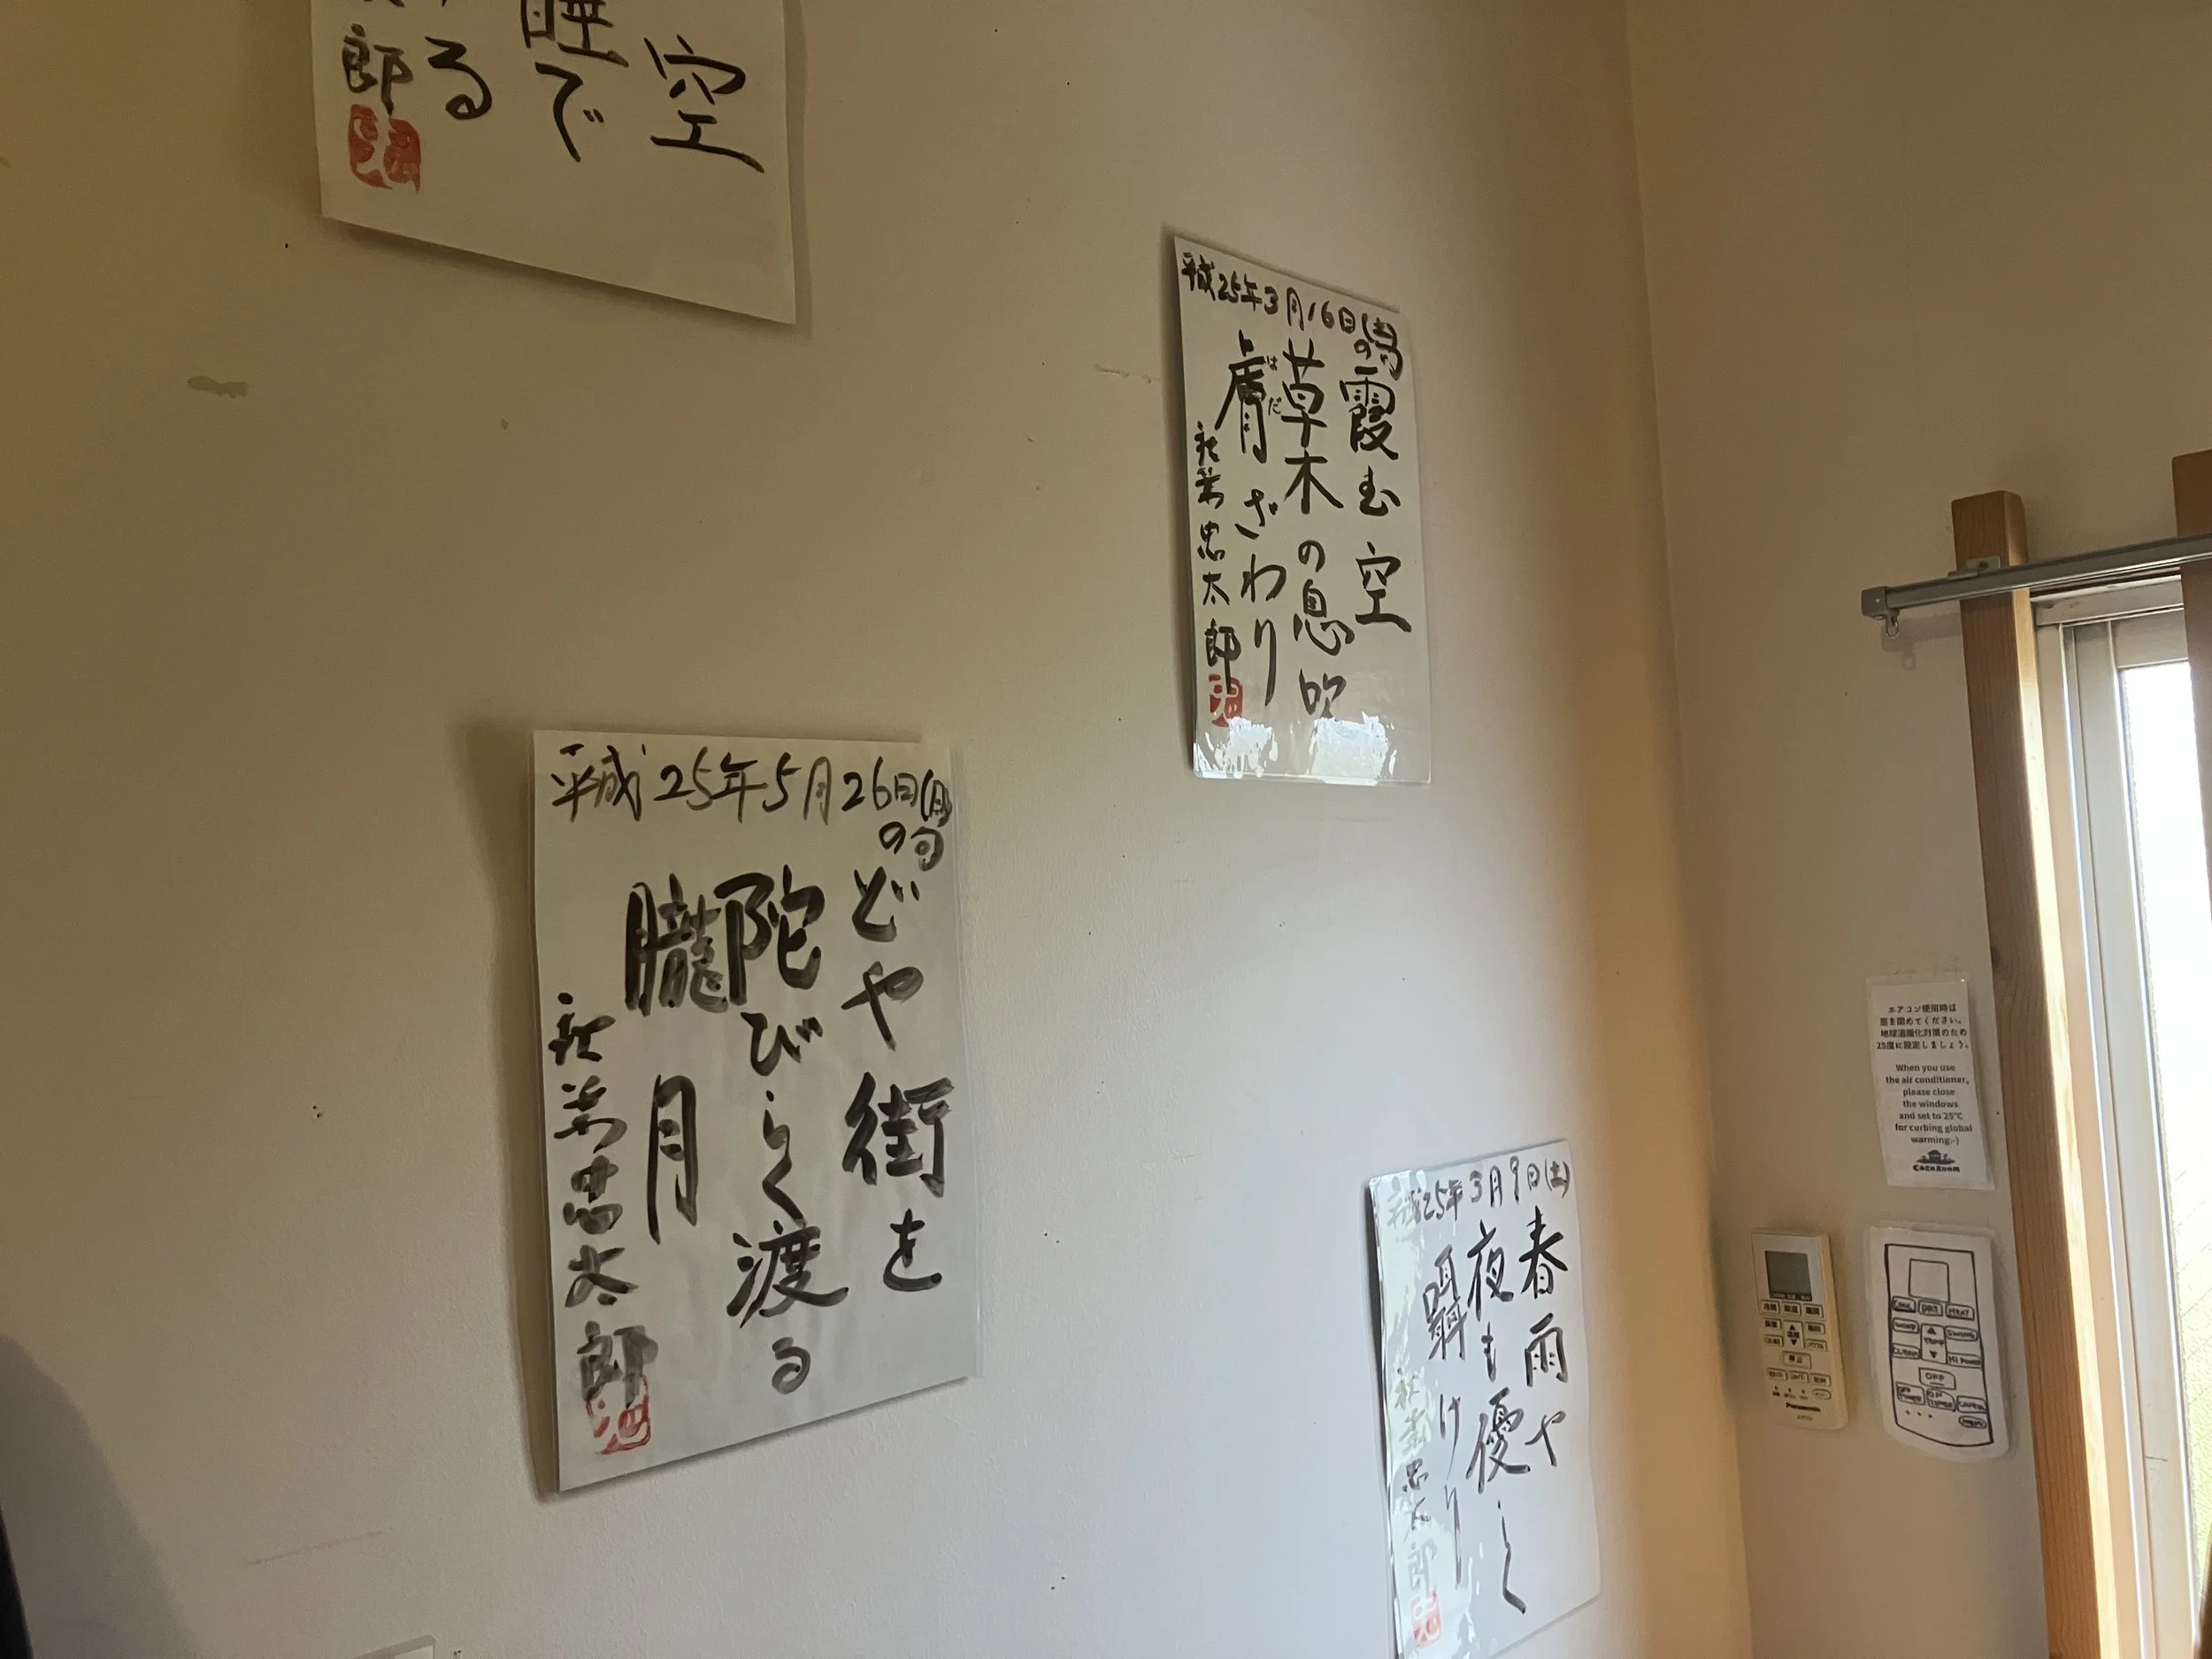 空
睡で
る
郎
平成25年3月16日(土)
の句
霞む空
草木の息吹
膚ざわり
はだ
忠太郎
平成25年5月26日(日)
の句
どや街を
陀びしく渡る
朧月
忠太郎
平成25年3月9日(土)
春雨や
夜も優しく
囁けり
忠太郎
エアコン使用時は
窓を閉めてください。
地球温暖化対策のため
25度に設定しましょう。
When you use
the air conditioner,
please close
the windows
and set to 25℃
for curbing global
warming:-)
COCOROOM
Panasonic
COOL DRY HEAT
TEMP
OFF